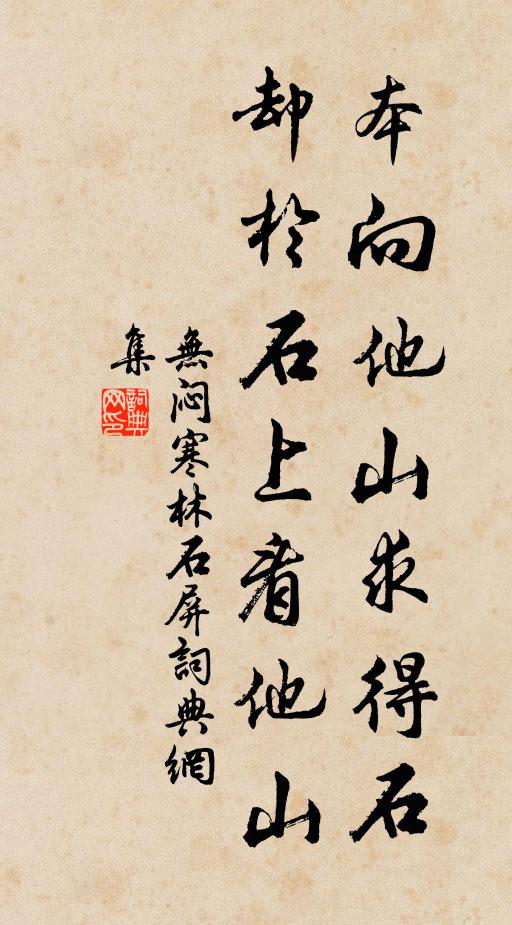 本向他山求得石
却於石上看他山
無悶寒林石屏詞典網
集
詞典網印